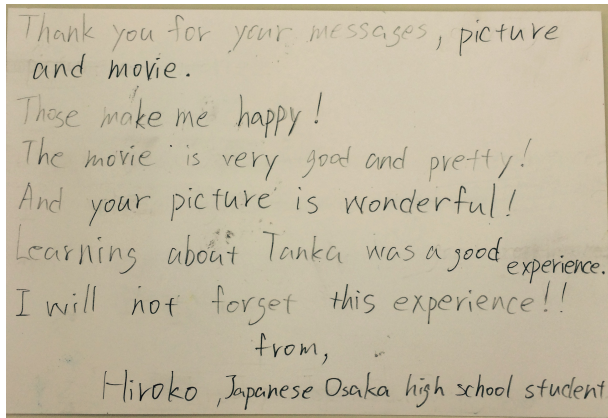 Thank you for your messages, picture
and movie.
Those make me happy!
The movie is very good and pretty!
And your picture is wonderful!
Learning about Tanka was a good experience.
I will not forget this experience!!
from,
Hiroko, Japanese Osaka high school student